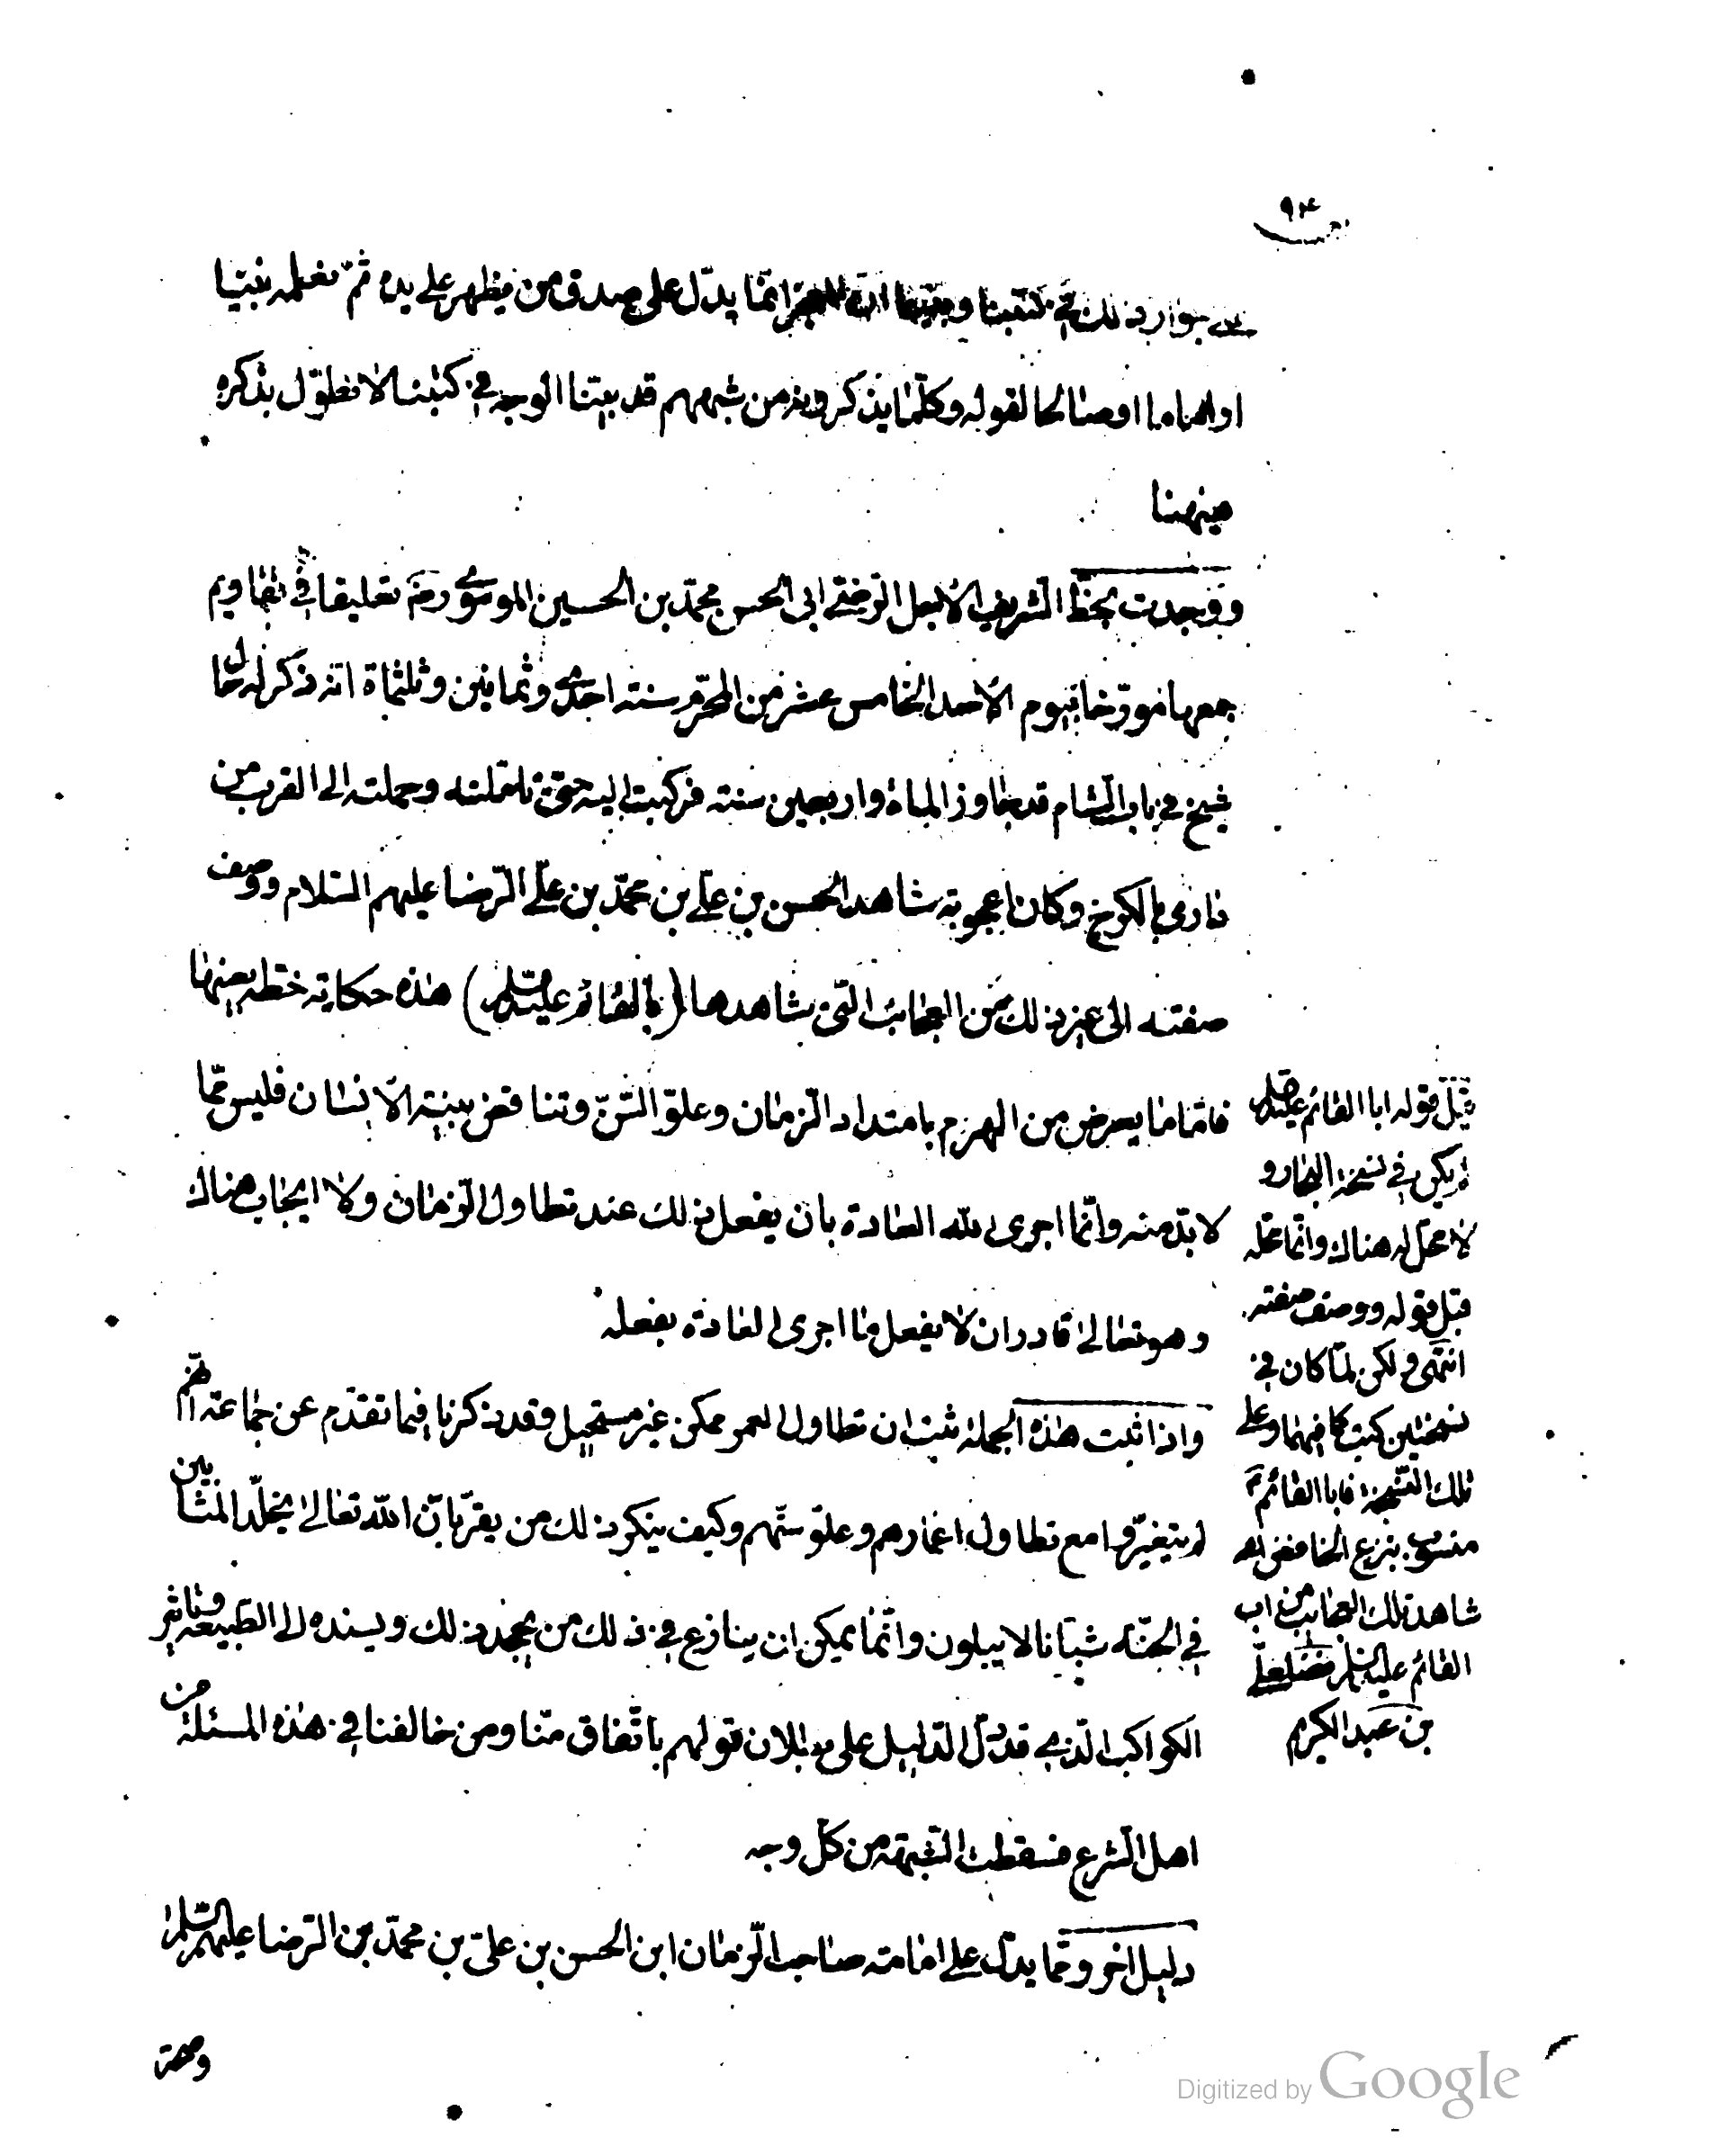 ٩٤
جواز ذلك في كتبنا وبينا ان المعجز انما يدل على صدق من يظهر على يده ثم نعلمه نبيا
او اماما او صالحا لقوله وكلما يذكرونه من شبههم قد بينا الوجه في كتبنا لا نطول بذكره
هيهنا
ووجدت بخط الشريف الاجل الرضي ابي الحسن محمد بن الحسين الموسوي رض تعليقا في تقاويم
جمعها مورخا بيوم الاحد الخامس عشر من المحرم سنة احدى وثمانين وثلثماة انه ذكر له حال
شيخ في باب الشام قد جاوز الماة واربعين سنة فركبت اليه حتى تاملته وحملته الى القرب من
داري بالكرخ وكان اعجوبة شاهد الحسن بن علي بن محمد بن علي الرضا عليهم السلام ووصف
صفته الى غير ذلك من العجائب التي شاهدها (ابا القائم عليه السلم) هذه حكاية خطه بعينها
فاما ما يعرض من الهرم بامتداد الزمان وعلو السن وتناقض بنية الانسان فليس مما
لا بد منه وانما اجرى الله العادة بان يفعل ذلك عند تطاول الزمان ولا ايجاب هناك
وهو تعالى قادر ان لا يفعل ما اجرى العادة بفعله
واذا ثبت هذه الجملة ثبت ان تطاول العمر ممكن غير مستحيل وقد ذكرنا فيما تقدم عن جماعة انهم
لم يتغيروا مع تطاول اعمارهم وعلو سنهم وكيف ينكر ذلك من يقر بان الله تعالى يخلد المثابين
في الجنة شبانا لا يبلون وانما يمكن ان ينازع في ذلك من يجحد ذلك ويسنده الى الطبيعة وتاثير
الكواكب الذي قد دل الدليل على بطلان قولهم باتفاق منا ومن خالفنا في هذه المسئلة من
اهل الشرع فسقطت الشبهة من كل وجه
دليل اخر ومما يدل على امامة صاحب الزمان ابن الحسن بن علي بن محمد بن الرضا عليهم السلم
وصحة
قيل قوله ابا القائم عليه السلم
لم يكن في نسخة البحار و
لا محل له هناك وانما محله
قبل قوله ووصف صفته
انتهى ولكن لما كان في
نسختين كتبت كما فيهما وعلى
تلك النسخة فابا القائم ع
منصوب بنزع الخافض اي
شاهد تلك العجائب من اب
القائم عليه السلم فضلعلي
بن عبد الكريم
Digitized by Google